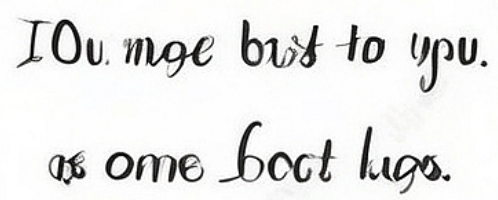 IOu. mge bust to ypu.
as ome boct lugs.